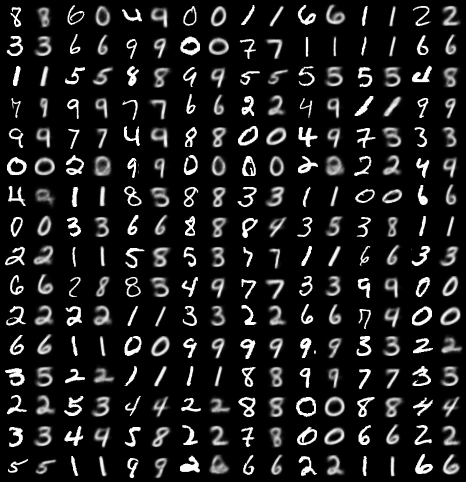 8 8 6 0 4 9 0 0 1 1 6 6 1 1 2 2
3 3 6 6 9 9 0 0 7 7 1 1 1 1 6 6
1 1 5 5 8 8 9 9 5 5 5 5 5 5 4 8
7 9 9 9 7 7 6 6 2 2 4 9 1 1 9 9
9 9 7 7 4 9 8 8 0 0 4 9 7 5 3 3
0 0 2 9 9 0 0 0 0 2 2 2 4 9
4 1 1 8 5 8 8 3 3 1 1 0 0 6 6
0 0 3 3 6 6 8 8 8 4 3 5 3 8 1 1
2 2 1 1 5 8 5 3 7 7 1 1 6 6 3 3
6 6 2 8 8 5 4 9 7 7 3 3 9 9 0 0
2 2 2 2 1 1 3 3 2 2 6 6 7 9 0 0
6 6 1 1 0 0 9 9 9 9 9 9 3 3 2 2
3 5 2 2 1 1 1 1 8 8 9 9 7 7 3 3
2 2 5 3 4 4 2 2 8 8 0 0 8 8 4 4
3 3 4 9 5 8 2 2 7 8 0 0 6 6 2 2
5 5 1 1 9 9 2 6 6 2 2 1 1 6 6